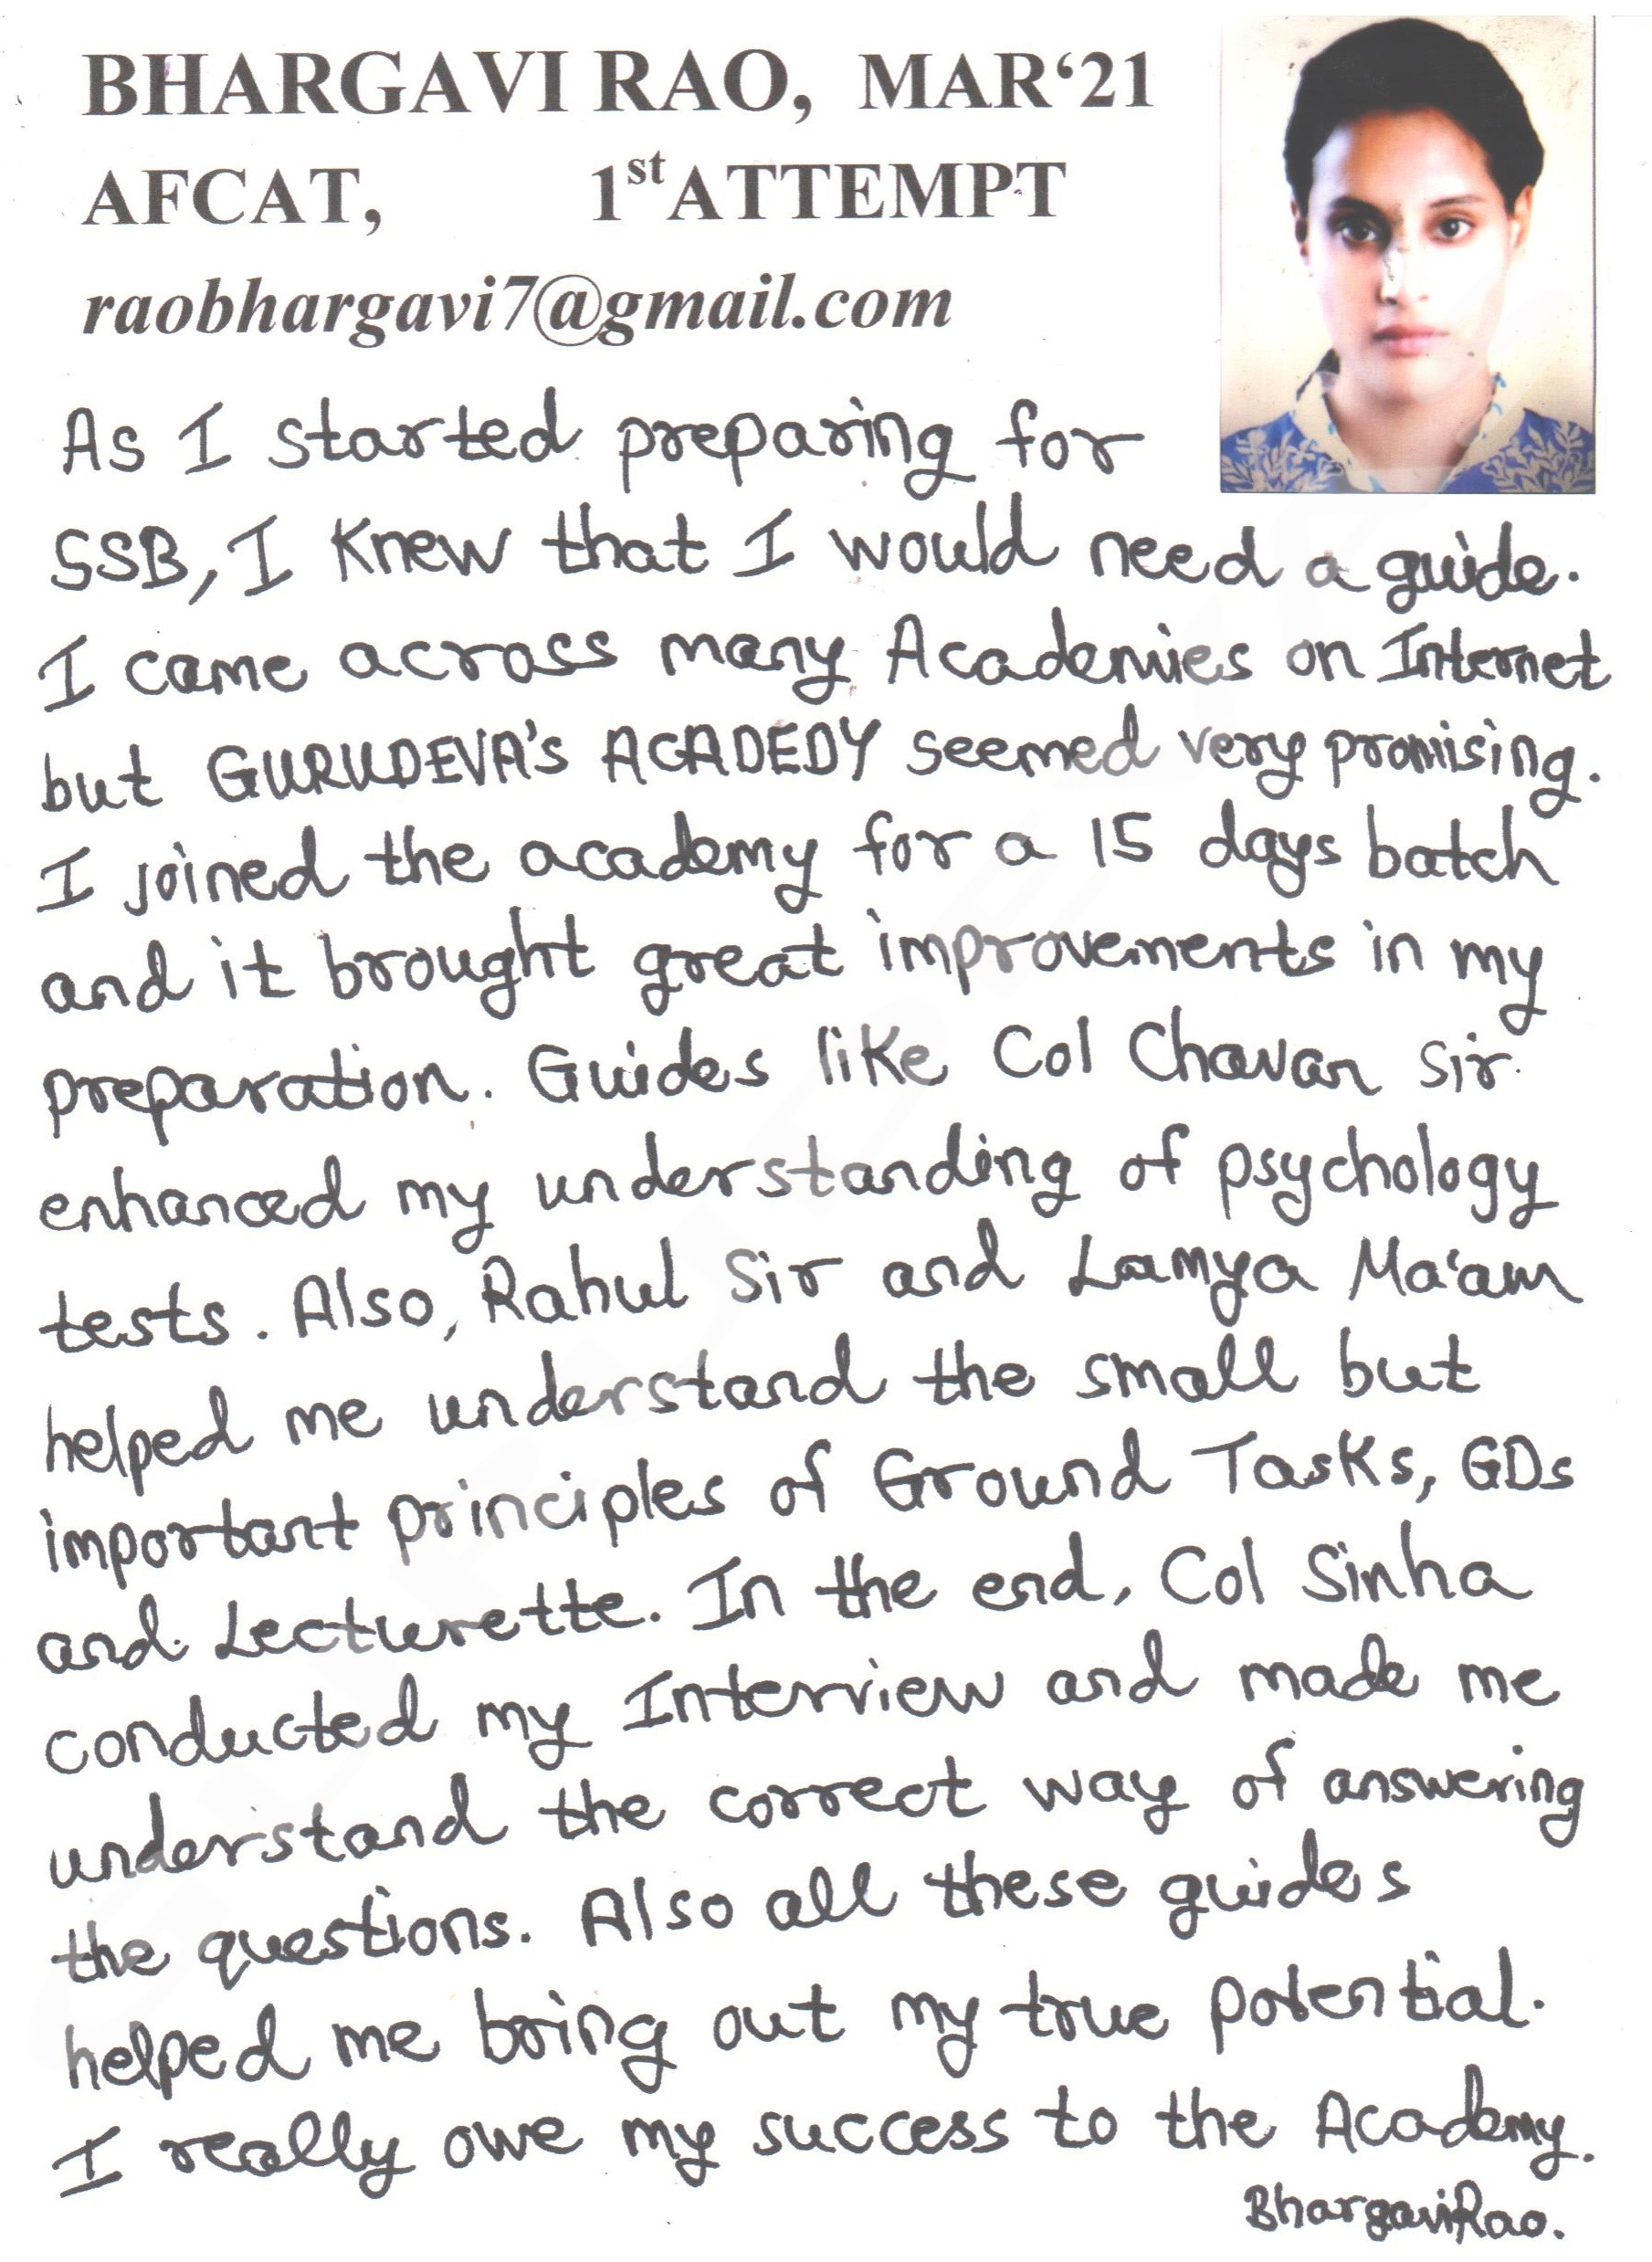 BHARGAVI RAO, MAR‘21
AFCAT, 1st ATTEMPT
raobhargavi7@gmail.com
As I started preparing for
SSB, I knew that I would need a guide.
I came across many Academies on Internet
but GURUDEVA's ACADEDY seemed very promising.
I joined the academy for a 15 days batch
and it brought great improvements in my
preparation. Guides like Col Chavan Sir
enhanced my understanding of psychology
tests. Also, Rahul Sir and Lamya Ma'am
helped me understand the small but
important principles of Ground Tasks, GDs
and Lecturette. In the end, Col Sinha
conducted my Interview and made me
understand the correct way of answering
the questions. Also all these guides
helped me bring out my true potential.
I really owe my success to the Academy.
Bhargavi Rao.